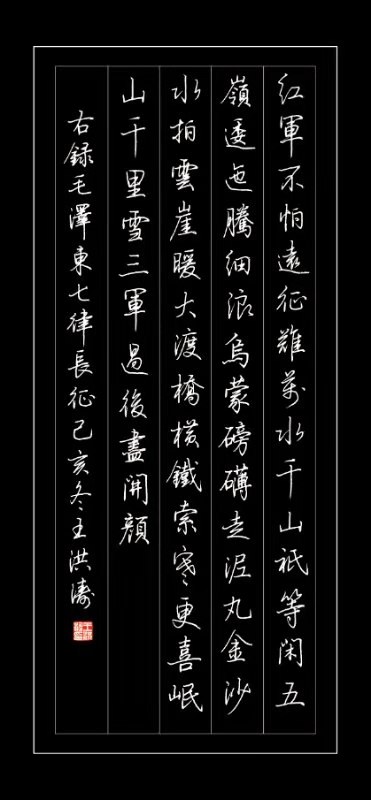 紅軍不怕遠征難萬水千山祇等閑五
嶺逶迤騰細浪烏蒙磅礴走泥丸金沙
水拍雲崖暖大渡橋橫鐵索寒更喜岷
山千里雪三軍過後盡開顏
右録毛澤東七律長征己亥冬王洪濤